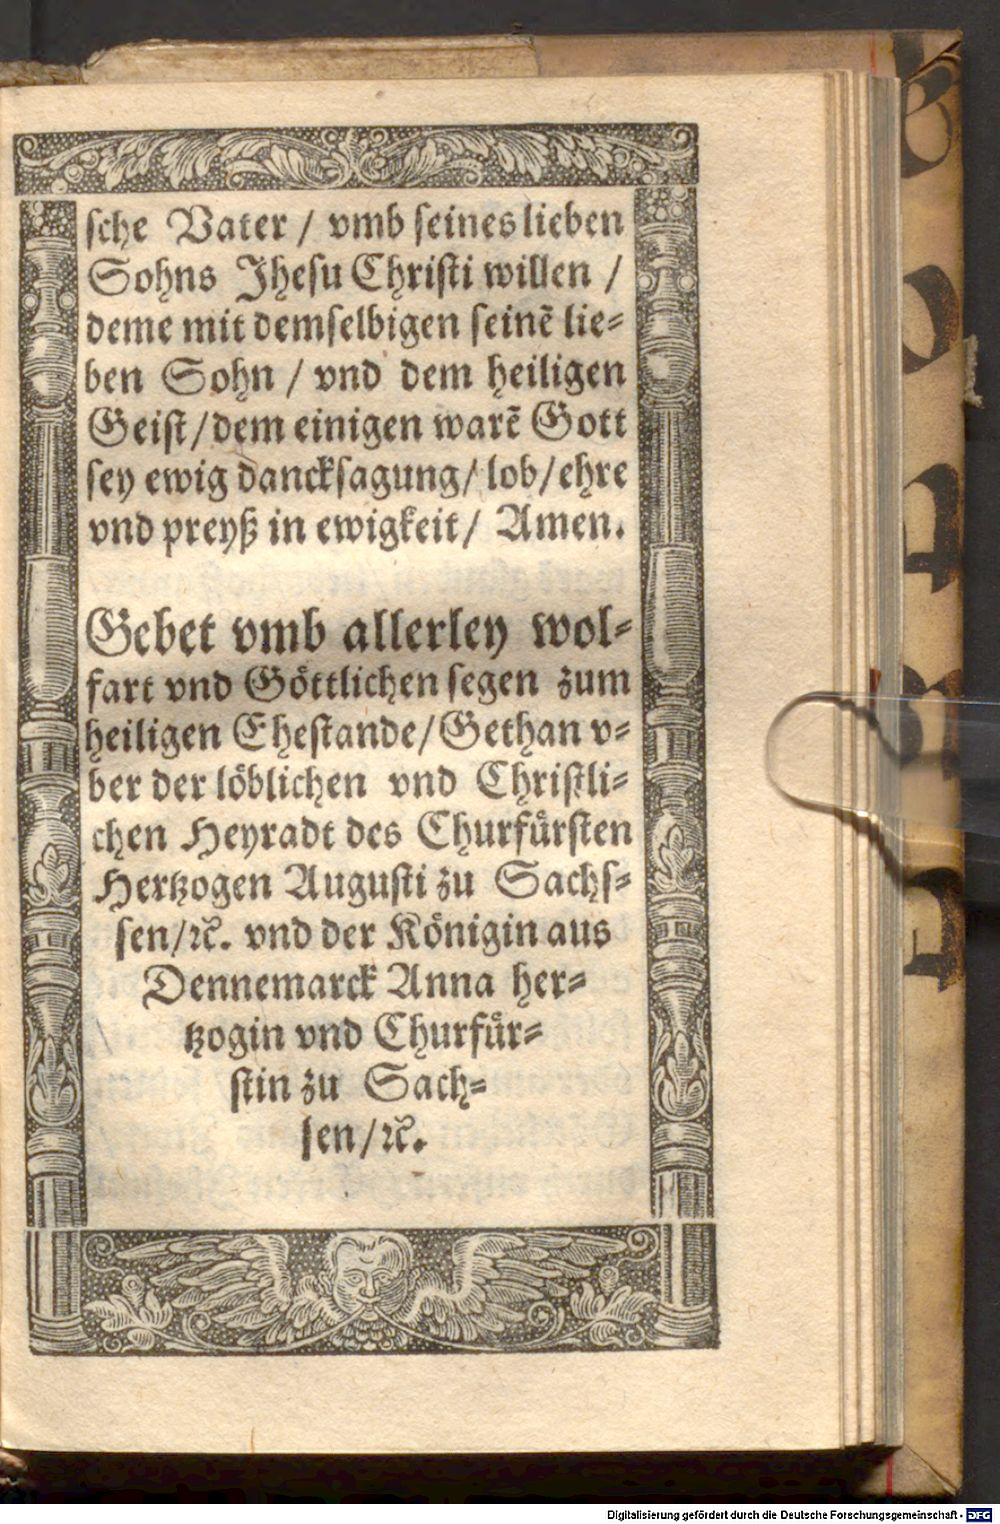 sche Vater / vmb seines lieben
Sohns Jhesu Christi willen /
deme mit demselbigen seinẽ lie⸗
ben Sohn / vnd dem heiligen
Geist/dem einigen warẽ Gott
sey ewig dancksagung/ lob/ehre
vnd preyß in ewigkeit/ Amen.
Gebet vmb allerley wol⸗
fart vnd Göttlichen segen zum
heiligen Ehestande/Gethan v⸗
ber der löblichen vnd Christli⸗
chen Heyradt des Churfürsten
Hertzogen Augusti zu Sachs⸗
sen/ꝛc̃. vnd der Königin aus
Dennemarck Anna her⸗
tzogin vnd Churfür⸗
stin zu Sach⸗
sen/ꝛc̃.
Digitalisierung gefördert durch die Deutsche Forschungsgemeinschaft - DFG